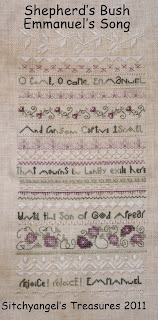 Shepherd's Bush
Emmanuel's Song
O Come, O Come, Emmanuel
And ransom captive Israel
That mourns in lonely exile here
Until the Son of God appear
rejoice! rejoice! Emmanuel
Sitchyangel's Treasures 2011